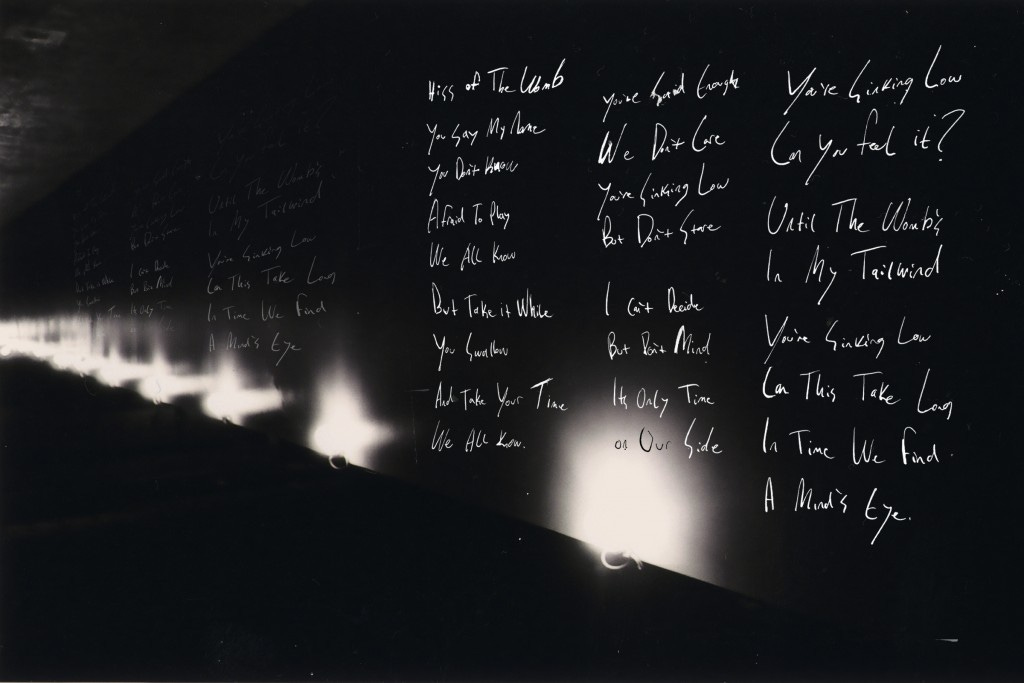 Hiss of The Womb
You Say My Name
You Don't Know
Afraid To Play
We All Know
But Take it While
You Swallow
And Take Your Time
We All Know.
You're Enough
We Don't Care
You're Sinking Low
But Don't Stare
I Can't Decide
But Don't Mind
Its Only Time
on Our Side
You're Sinking Low
Can You feel it?
Until The Womb's
In My Tailwind
You're Sinking Low
Can This Take Long
In Time We Find
A Mind's Eye.
Until The Womb's
In My Tailwind
You're Sinking Low
Can This Take Long
In Time We Find
A Mind's Eye